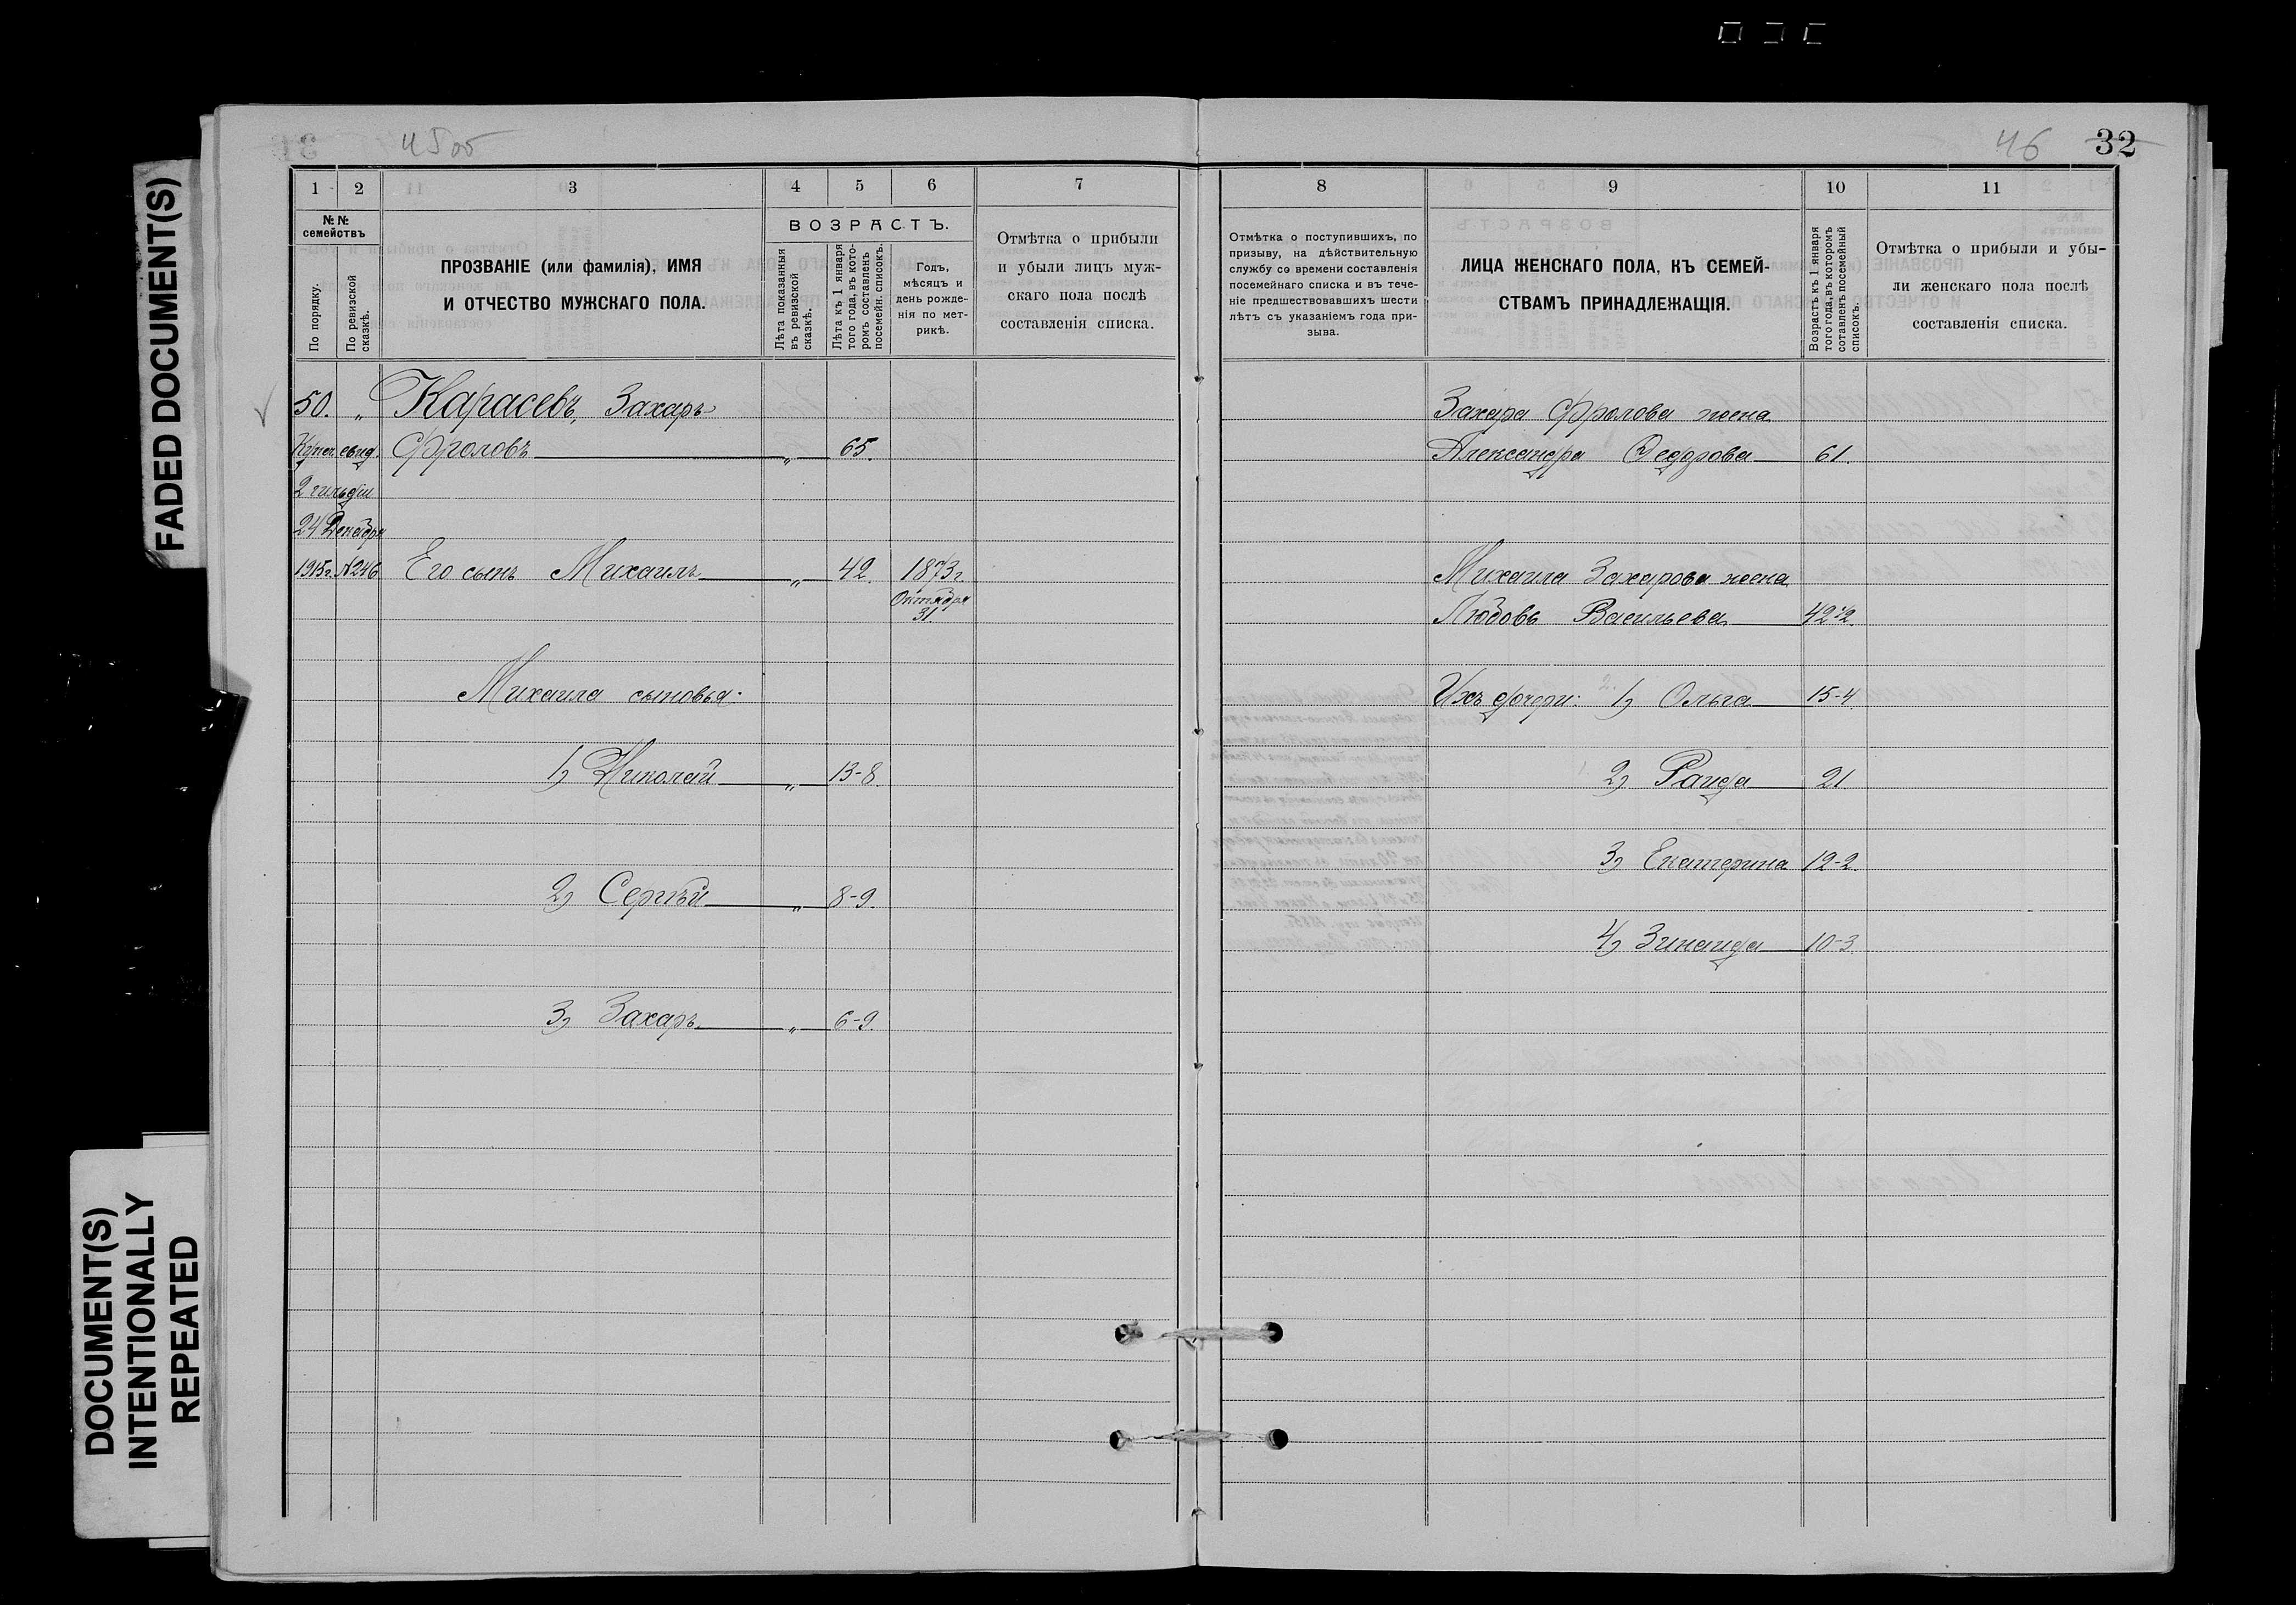 FADED DOCUMENT(S)
DOCUMENT(S)
INTENTIONALLY
REPEATED
45 об
46
32
1 2 3 4 5 6 7
№ №
семействъ
По порядку.
По ревизской
сказкѣ.
ПРОЗВАНІЕ (или фамилія), ИМЯ
И ОТЧЕСТВО МУЖСКАГО ПОЛА.
ВОЗРАСТЪ.
Лѣта показанныя
въ ревизской
сказкѣ.
Лѣта къ 1 января
того года, въ кото-
ромъ составленъ
посемейн. списокъ.
Годъ,
мѣсяцъ и
день рожде-
нія по мет-
рикѣ.
Отмѣтка о прибыли
и убыли лицъ муж-
скаго пола послѣ
составленія списка.
50. „ Карасевъ, Захаръ
Купеч. свид. Фроловъ „ 65.
2 гильдіи
24 Декабря
1915 г. № 246 Его сынъ Михаилъ „ 42. 1873 г.
Октября
31.
Михаила сыновья:
1) Николай „ 13-8.
2) Сергѣй „ 8-9.
3) Захаръ „ 6-9.
8 9 10 11
Отмѣтка о поступившихъ, по
призыву, на дѣйствительную
службу со времени составленія
посемейнаго списка и въ тече-
ніе предшествовавшихъ шести
лѣтъ съ указаніемъ года при-
зыва.
ЛИЦА ЖЕНСКАГО ПОЛА, КЪ СЕМЕЙ-
СТВАМЪ ПРИНАДЛЕЖАЩІЯ.
Возрастъ къ 1 января
того года, въ которомъ
сотавленъ посемейный
списокъ.
Отмѣтка о прибыли и убы-
ли женскаго пола послѣ
составленія списка.
Захара Фролова жена
Александра Ѳедорова 61.
Михаила Захарова жена
Любовь Васильева 42 1/2.
Ихъ дочери: 1) Ольга 15-4.
2) Раида 21.
3) Екатерина 12-2.
4) Зинаида 10-3.